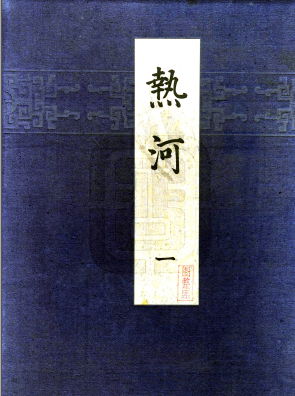 熱河
一